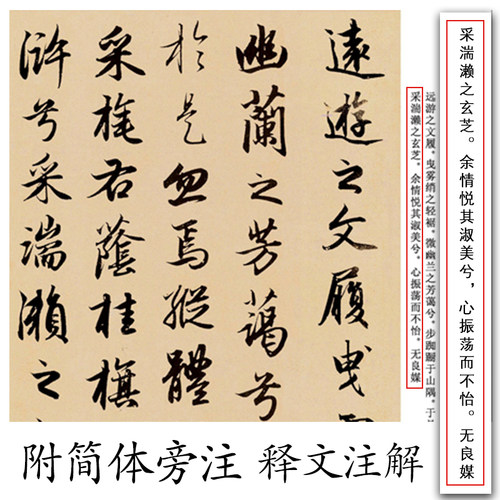 遠遊之文履曳
幽蘭之芳藹兮
於是忽焉縱體
采旄右蔭桂旗
滸兮采湍瀨之
远游之文履，曳雾绡之轻裾。微幽兰之芳蔼兮，步踟蹰于山隅。于
采湍濑之玄芝。余情悦其淑美兮，心振荡而不怡。无良媒
采湍濑之玄芝。余情悦其淑美兮，心振荡而不怡。无良媒
附简体旁注 释文注解